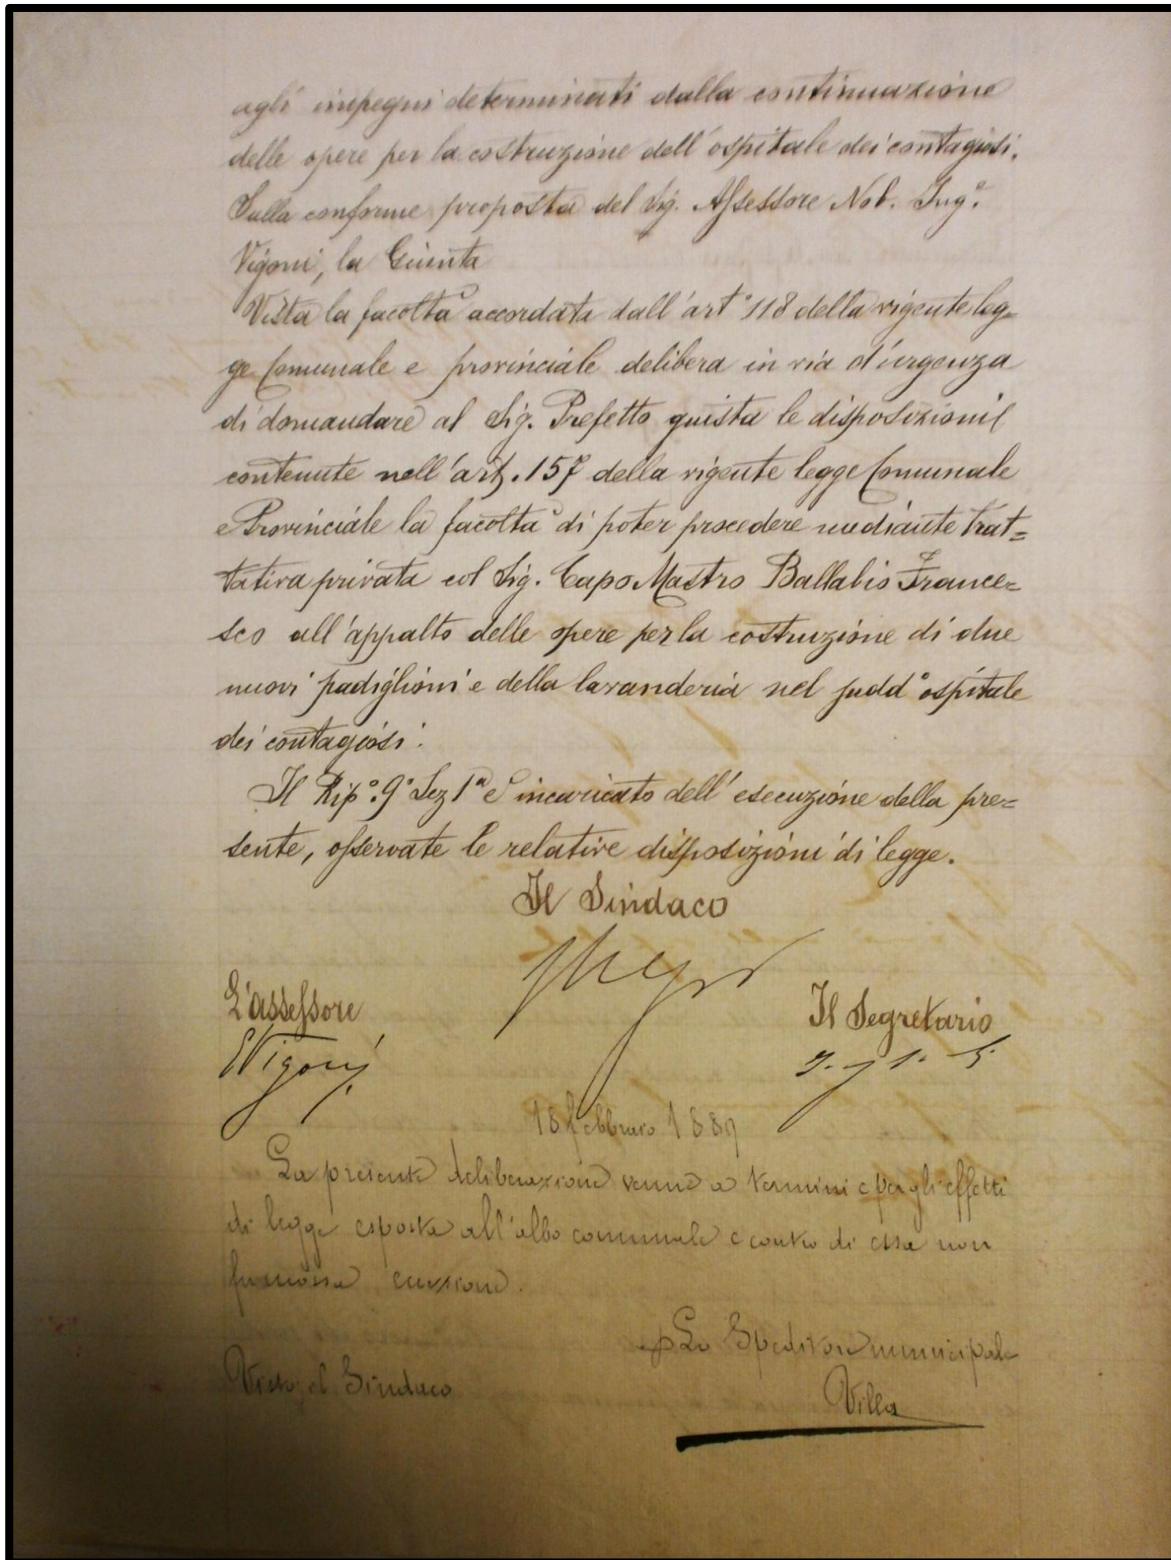 agli impegni determinati dalla continuazione
delle opere per la costruzione dell'ospitale dei contagiosi.
Sulla conforme proposta del Sig. Assessore Nob. Ing.e
Vigoni, la Giunta
Vista la facoltà accordata dall'art° 118 della vigente leg=
ge Comunale e provinciale delibera in via d'urgenza
di domandare al Sig. Prefetto giusta le disposizioni
contenute nell'art. 157 della vigente legge Comunale
e Provinciale la facoltà di poter procedere mediante trat=
tativa privata col Sig. Capo Mastro Ballabio France=
sco all'appalto delle opere per la costruzione di due
nuovi padiglioni e della lavanderia nel sudd° ospitale
dei contagiosi.
Il Rip°. 9° Sez 1a è incaricato dell'esecuzione della pre=
sente, osservate le relative disposizioni di legge.
Il Sindaco
L'assessore
Il Segretario
Vigoni
18 febbraio 1889
La presente deliberazione venne a termini e per gli effetti
di legge esposta all'albo comunale e contro di essa non
fu mossa eccezione.
p Lo Speditore municipale
Visto, il Sindaco
Villa